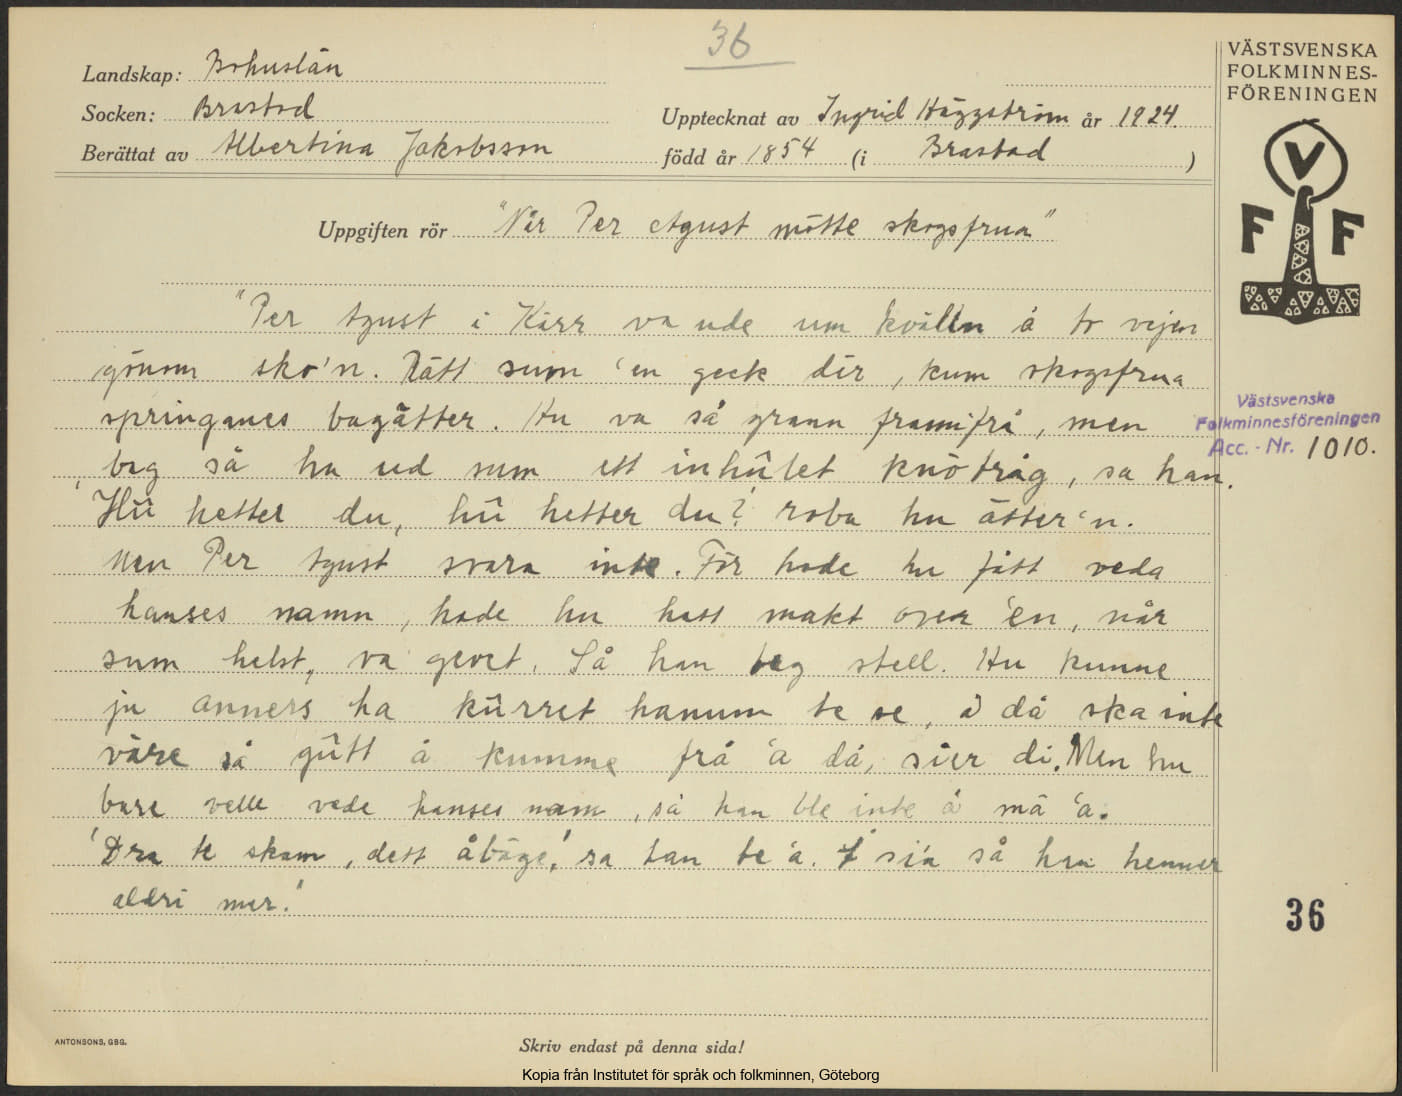 36
VÄSTSVENSKA
FOLKMINNES-
FÖRENINGEN
Landskap: Bohuslän
Socken: Brastad
Upptecknat av Ingrid Häggström år 1924.
Berättat av Albertina Jakobsson född år 1854 (i Brastad)
Uppgiften rör "När Per Agust mötte skogsfrua"
V
F F
"Per Agust i Kärr va ude um kvälln å to vejen
gönom sko'n. Rätt sum 'en geck där, kum skogsfrua
springanes bagätter. Hu va så grann framifrå, men
bag så hu ud sum ett inhûlet knötråg, sa han.
'Hû hetter du, hû hetter du? roba hu ätter'n.
Men Per Agust svara inte. För hade hu fått veda
hanses namn, hade hu hatt makt over 'en, når
sum helst, va gevet. Så han teg stell. Hu kunne
ju anners ha kûrret hanum te se, å då ska inte
våre så gûtt å kumme frå 'a då, sier di. Men hu
bare velle vede hanses namn, så han ble inte å mä 'a.
'Dra te skam, dett åbäge', sa han te 'a. I si'a så han henner
aldri mer."
Västsvenska
Folkminnesföreningen
Acc. - Nr. 1010.
36
ANTONSONS, GBG.
Skriv endast på denna sida!
Kopia från Institutet för språk och folkminnen, Göteborg